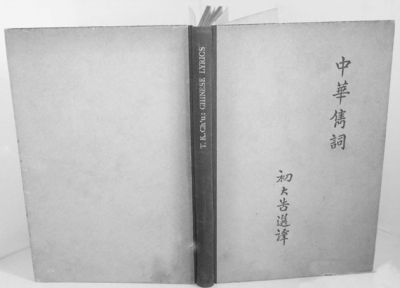 T. K. Ch'u: CHINESE LYRICS
中華雋詞
初大告選譯